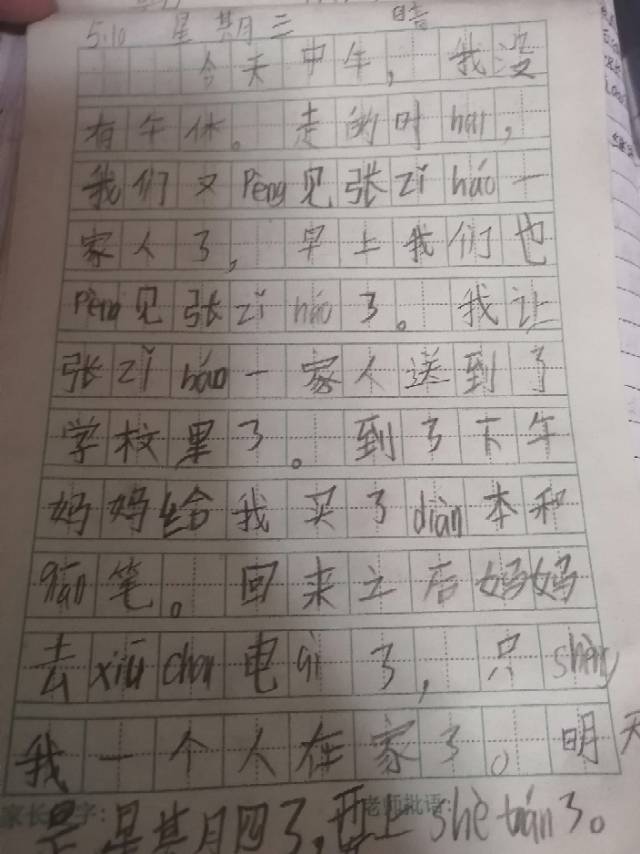 5.10 星期三 晴
今天中午,我没
有午休。走的时hai,
我们又Pèng见张zǐ háo一
家人了,早上我们也
Pèng见张zǐ háo了。我让
张zǐ háo一家人送到了
学校里了。到了下午
妈妈给我买了diàn本和
qiān笔。回来之后妈妈
去xiū chou电qì了,只shèng
我一个人在家了。明天
是星期四了,要上shè tuán了。
家长 字: 老师批语: